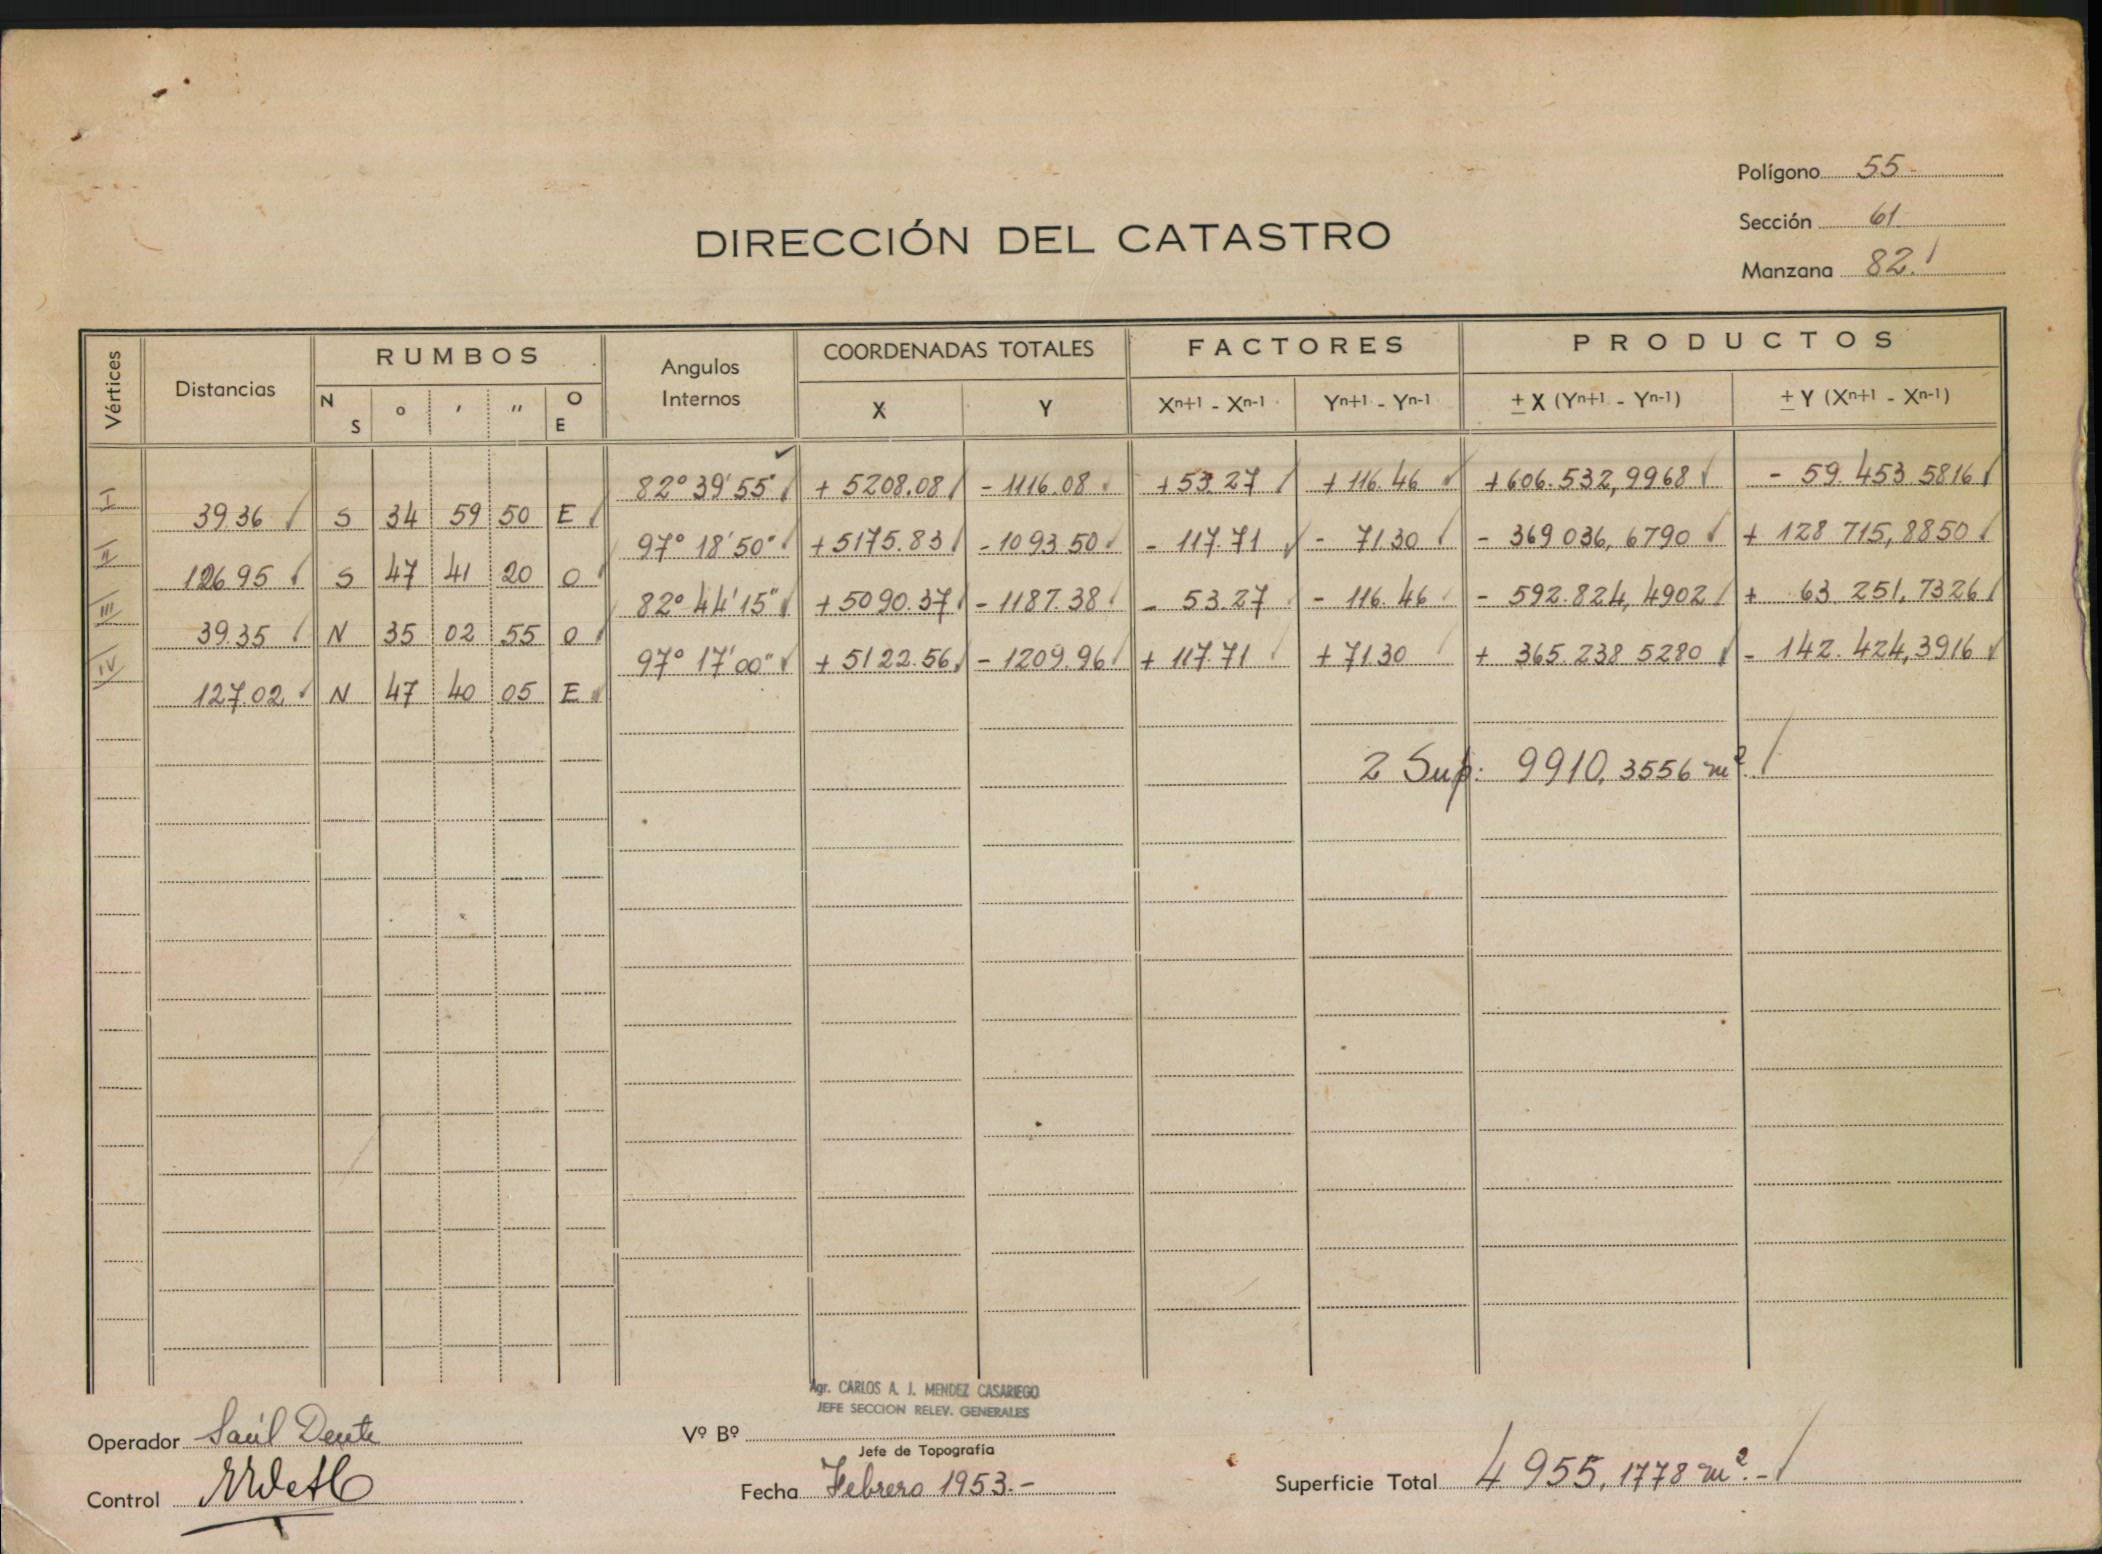 Polígono 55
Sección 61
Manzana 82.
DIRECCIÓN DEL CATASTRO
Vértices
Distancias
RUMBOS
N S
o
'
"
O E
Angulos Internos
COORDENADAS TOTALES
X
Y
FACTORES
Xⁿ⁺¹ - Xⁿ⁻¹
Yⁿ⁺¹ - Yⁿ⁻¹
PRODUCTOS
± X (Yⁿ⁺¹ - Yⁿ⁻¹)
± Y (Xⁿ⁺¹ - Xⁿ⁻¹)
82° 39' 55" + 5208.08 - 1116.08 + 53.27 + 116.46 + 606.532,9968 - 59.453 5816
I 39.36 S 34 59 50 E
97° 18' 50" + 5175.83 - 1093.50 - 117.71 - 71.30 - 369 036,6790 + 128 715,8850
II 126.95 S 47 41 20 O
82° 44' 15" + 5090.37 - 1187.38 - 53.27 - 116.46 - 592.824,4902 + 63.251,7326
III 39.35 N 35 02 55 O
97° 17' 00" + 5122.56 - 1209.96 + 117.71 + 71.30 + 365.238 5280 - 142.424,3916
IV 127.02 N 47 40 05 E
2 Sup: 9910,3556 m².
Agr. CARLOS A. J. MENDEZ CASARIEGO
JEFE SECCION RELEV. GENERALES
Operador Saúl Dente
Vº Bº
Jefe de Topografía
Control
Fecha Febrero 1953.-
Superficie Total 4955,1778 m².-